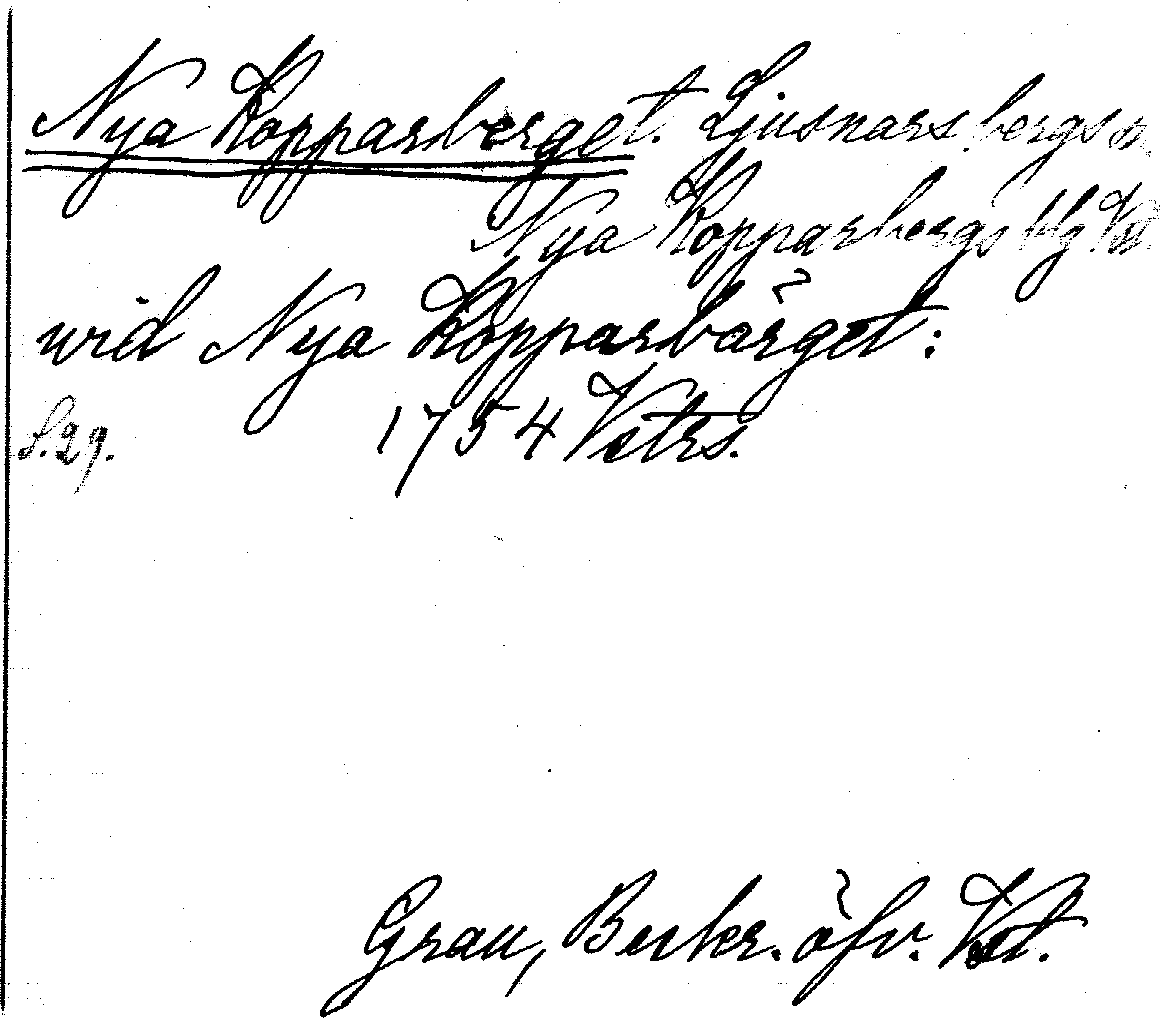 Nya Kopparberget. Ljusnarsbergs sn
Nya Kopparbergs blg. Vst.
wid Nya Kopparbärget:
S. 29. 1754 Vstrs.
Grau, Beskr. öfv. Vst.